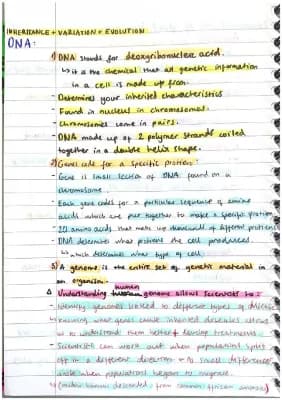 INHERITANCE + VARIATION + EVOLUTION
DNA:
1) DNA stands for deoxyribonucleic acid.
↳ it is the chemical that all genetic information
in a cell is made up from.
- Determines your inherited characteristics
- Found in nucleus in chromosomes.
- Chromosomes come in pairs.
- DNA made up of 2 polymer strands coiled
together in a double helix shape.
2) Genes code for a specific protein:
- Gene is small section of DNA found on a
chromosome
- Each gene codes for a particular sequence of amino
acids which are put together to make a specific protein
- 20 amino acids that make up thousands of different proteins
- DNA determines what proteins the cell produces
↳ which determines what type of cell
3) A genome is the entire set of genetic material in
an organism.
Understanding human genome allows scientists to:
- identify genomes linked to different types of disease
- knowing what genes cause inherited diseases allows
us to understand them better + develop treatments
- Scientists can work out when populations split
off in a different direction small differences
when populations began to migrate.
human descended from common african ancestor)